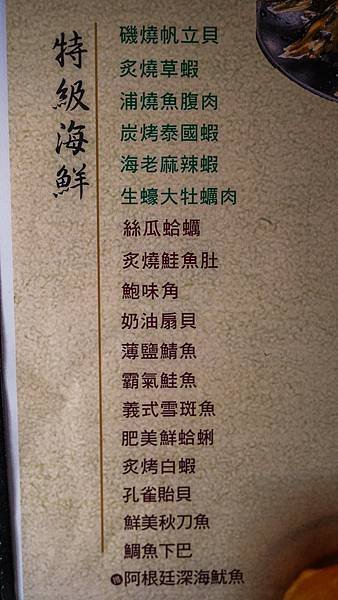 特級海鮮
磯燒帆立貝
炙燒草蝦
浦燒魚腹肉
炭烤泰國蝦
海老麻辣蝦
生蠔大牡蠣肉
絲瓜蛤蠣
炙燒鮭魚肚
鮑味角
奶油扇貝
薄鹽鯖魚
霸氣鮭魚
義式雪斑魚
肥美鮮蛤蜊
炙烤白蝦
孔雀貽貝
鮮美秋刀魚
鯛魚下巴
阿根廷深海魷魚